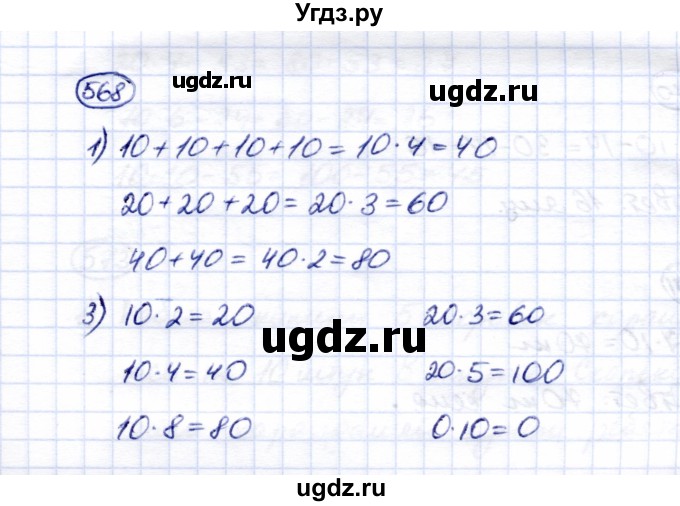 Угдз.ру
568
ugdz.ru
ugdz.ru
1) 10+10+10+10=10·4=40
ugdz.ru
20+20+20=20·3=60
40+40=40·2=80
3) 10·2=20 20·3=60
ugdz.ru
10·4=40 20·5=100
10·8=80 0·10=0
ugdz.ru
ugdz.ru